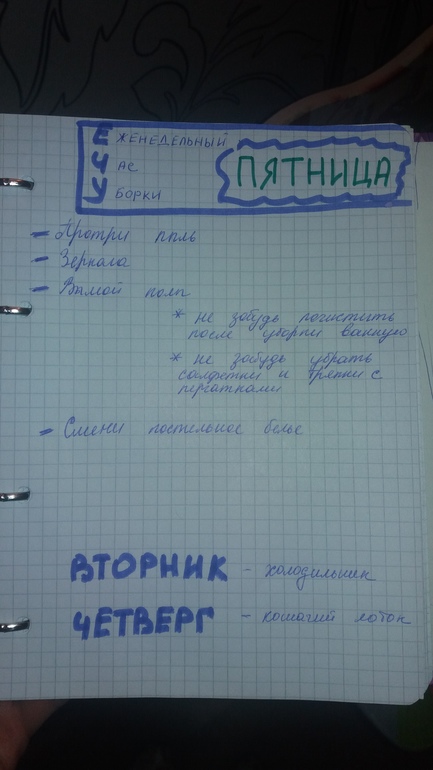 ЕЖЕНЕДЕЛЬНЫЙ
ЧАС
УБОРКИ
ПЯТНИЦА
- Протри пыль
- Зеркала
- Вымой полы
* не забудь почистить
после уборки ванную
* не забудь убрать
салфетки и тряпки с
перчатками
- Смени постельное белье
ВТОРНИК - холодильник
ЧЕТВЕРГ - кошачий лоток